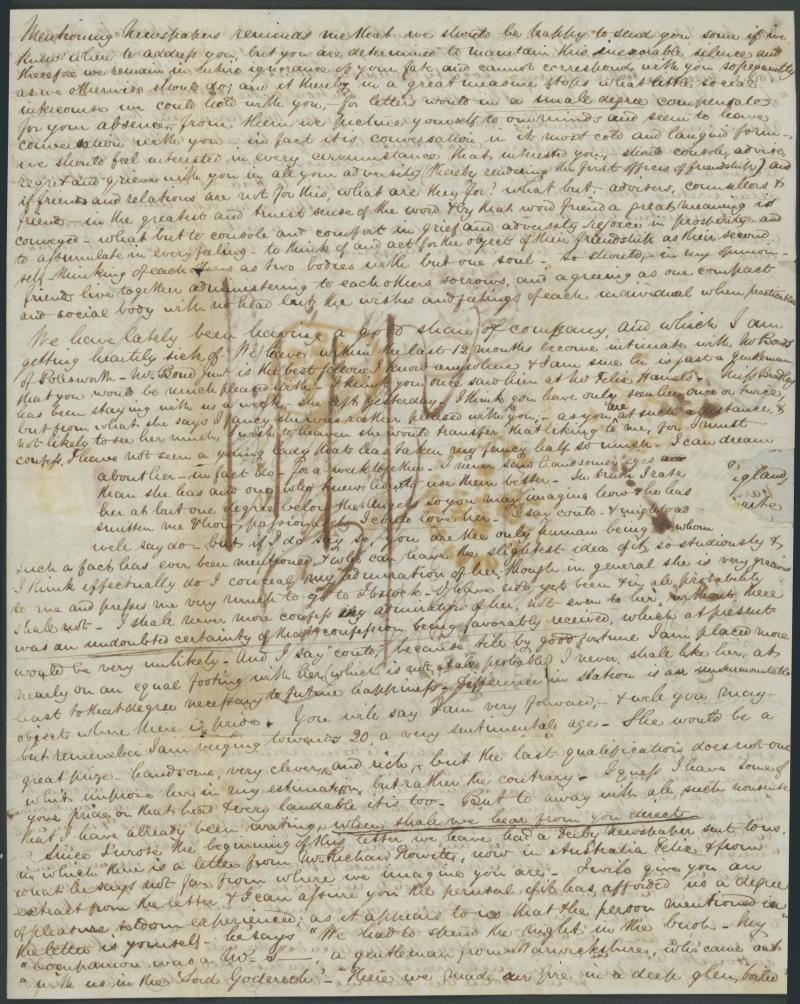 Mentioning Newspapers reminds me that we should be happy to send you some if we
knew where to address you, but you are determined to maintain this inexorable silence and
therefore we remain in entire ignorance of your fate and cannot correspond with you so frequently
as we otherwise should do; and it thereby in a great measure stops what little social
intercourse we could hold with you, - for letters would in a small degree compensate
for your absence, from them we picture yourself to our minds and seem to have
conversation with you - in fact it is conversation in it most cold and languid form -
we should feel interested in every circumstance that interested you, - should console, advise,
regret and grieve with you in all your adversity (thereby rendering the first offices of friendship) and
if friends and relations are not for this, what are they for? what but - advisers, counsellors &
friends - in the greatest and truest sense of the word & by that word friend a great meaning is
conveyed - what but to console and comfort in grief and adversity, rejoice in prosperity - and
to assimulate in every feeling - to think of and act for the object of their friendship as their second
self - thinking of each as two bodies with but one soul - So should, - in my opinion -
friends live together administering to each others sorrows, and agreeing as one compact
and social body with no head but the wishes and feelings of each individual when practicable
We have lately been having a good share of company and which I am
getting heartily sick of. We have within the last 12 months become intimate with Mr Bond
of Polesworth - Mr. Bond Junr is the best fellow I know anywhere & I am sure he is just a gentleman
that you would be much pleased with - I think you once saw him at Mr Felix Hamel's - Miss
has been staying with us a week, she left yesterday, I think you have only seen her once or twice,
but from what she says I fancy she was rather pleased with you, - as you are at such a distance, &
not likely to see her much, I wish to heaven she would transfer that liking to me, for I must
confess, I have not seen a young lady that has taken my fancy half so much - I can dream
about her - in fact do - for a week together - I never saw handsomer eyes
than she has and one who knew how to use them better - In truth I rate
her at but one degree below the Angels so you may imagine how she has
smitten me & how passionately I could love her - I say could - & might as
well say do - but if I do say so, you are the only human being to whom
such a fact has ever been mentioned, & who can have the slightest idea of it, so studiously &
I think effectually do I conceal my admiration of her, though in general she is very gracious
to me and presses me very much to go to Ibstock - I have not yet been & in all probability
shall not - I shall never more confess my admiration of her, not even to her, without there
was an undoubted certainty of that confession being favorably received, which at present
would be very unlikely - And I say "could," because till by good fortune I am placed more
nearly on an equal footing with her (which is not at all probable) I never shall like her, at
least to that degree necessary to future happiness - Difference in station is an insurmountable
object where there is pride. You will say I am very forward, - & well you may -
but remember I am verging towards 20, a very sentimental age - She would be a
great prize - handsome, very clever, and rich, - but the last qualification does not one
whit improve her in my estimation, but rather the contrary - I guess I have some of
your pride on that head & very laudable it is too - But to away with all such nonsense
that I have already been writing, when shall we hear from you direct
Since I wrote the beginning of this letter we have had a Derby Newspaper sent to us.
in which there is a letter from Mr. Richard Howitt, now in Australia Felix & from
what he says not far from where we imagine you are - I will give you an
extract from the letter & I can assure you the perusal of it has afforded us a degree
of pleasure seldom experienced; as it appears to us that the person mentioned in
the letter is yourself - he says "We had to spend the night in the bush - My
"companion was a Mr. S-, a gentleman from Warwickshire, who came out
"with us in the 'Lord Goderich' - "There we made our fire in a deep glen, boiled